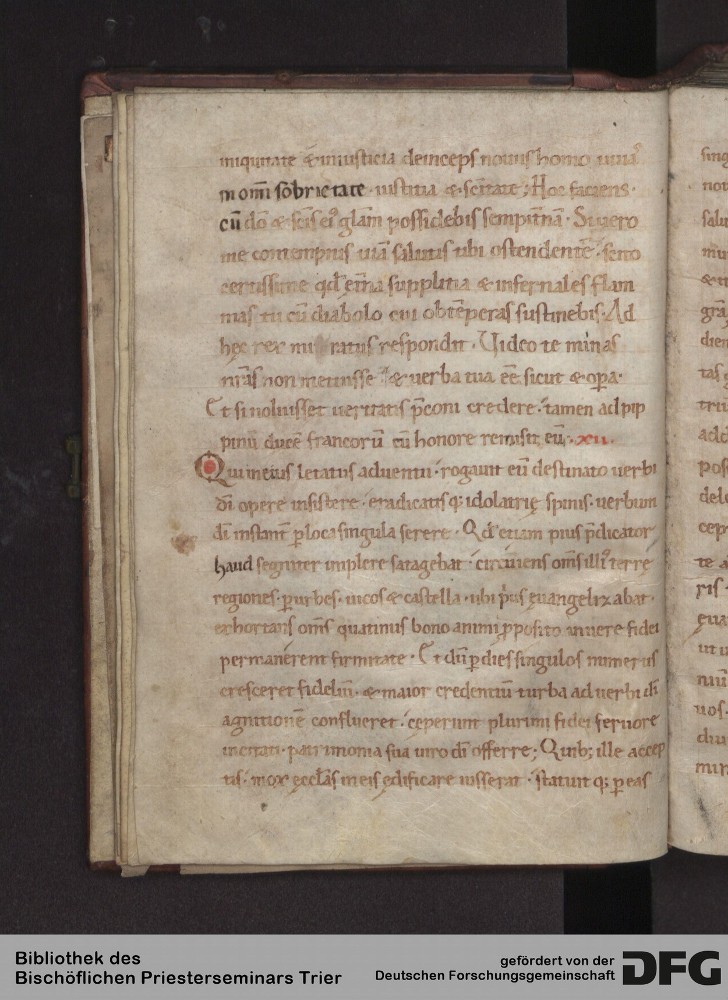 iniquitate & iniusticia deinceps nouus homo uiuas
in om̄i sobrietate · iustitia & sc̄itate; Hoc faciens ·
cū dō & sc̄is ei᷒ glām possidebis sempit̄nā · Si uero
me contempnis uiā salutis tibi ostendentē · scito
certissime qd̄ et̄na supplitia & infernales flam
mas tu cū diabolo cui obtēperas sustinebis · Ad
hęc rex mi ratus respondit · Uideo te minas
nr̄as non metuisse & uerba tua eē sicut & opa ·
Et si noluisset ueritatis p̄coni credere · tamen ad pip
pinū ducē francorū cū honore remisit eū · XII.
Qui in eius letatus aduentu · rogauit eū destinato uerbi
dī opere insistere · eradicatisq; idolatrię spinis · uerbum
dī instant̄ p̱ loca singula serere · Qd̄ etiam pius p̄dicator
haud segniter implere satagebat · circuiens om̄s illi᷒ terrę
regiones · p̱ urbes · uicos & castella · ubi pri᷒s euangelizabat ·
exhortans om̄s quatinus bono animi p̱posito in uere fidei
permanerent firmitate · Et dū p̱ dies singulos numerus
cresceret fideliū · & maior credentiū turba ad uerbi dī
agnitionē conflueret · ceperunt plurimi fidei feruore
incitati · patrimonia sua uiro dī offerre; Quib; ille accep
tis · mox ęccl̄as in eis ędificare iusserat · statuitq; p̱ eas
Bibliothek des
Bischöflichen Priesterseminars Trier
gefördert von der
Deutschen Forschungsgemeinschaft
DFG